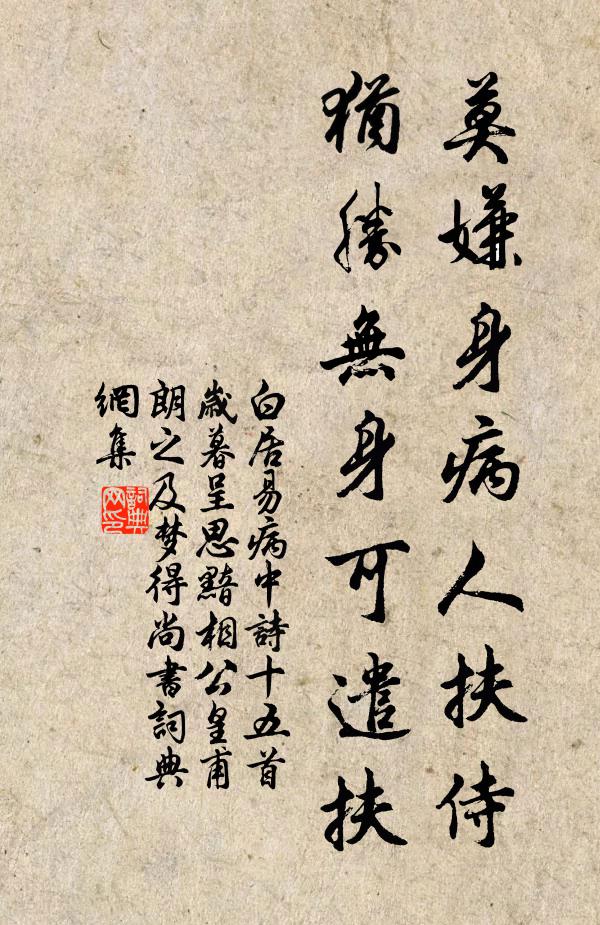 莫嫌身病人扶侍
猶勝無身可遣扶
白居易病中詩十五首
歲暮呈思黯相公皇甫
朗之及梦得尚書詞典
網集
詞典網印